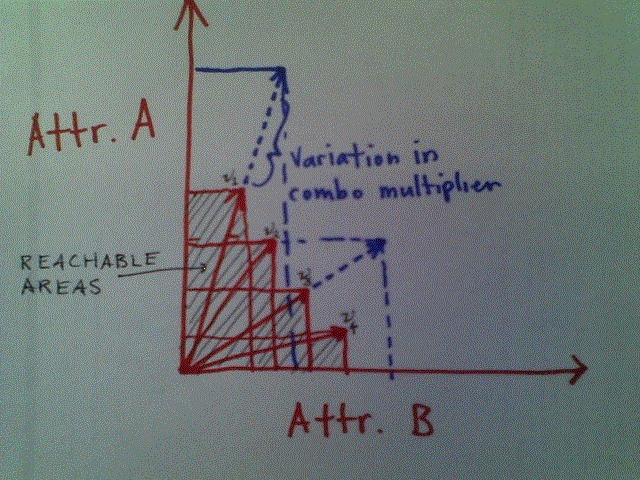 Attr. A
Variation in
combo multiplier
v1
v2
v3
v4
REACHABLE
AREAS
Attr. B